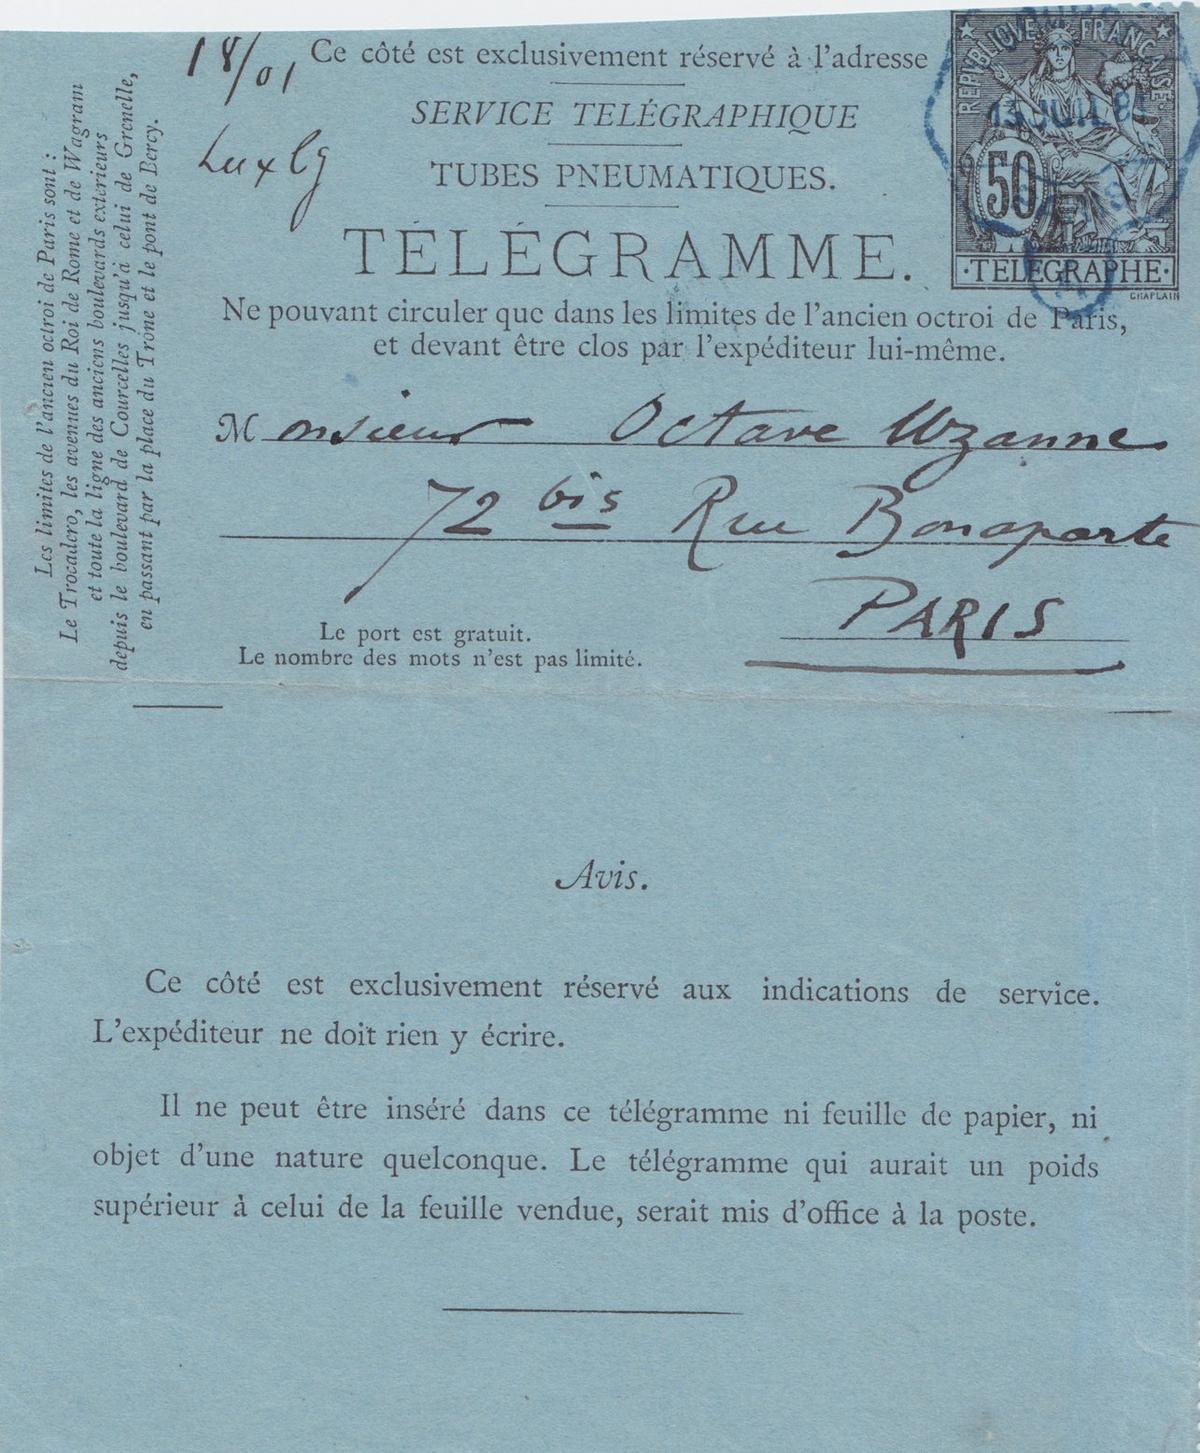 18/01
Luxbg
Ce côté est exclusivement réservé à l'adresse
SERVICE TELÉGRAPHIQUE
TUBES PNEUMATIQUES.
TÉLÉGRAMME.
REPUBLIQUE FRANÇAISE
13 JUIL 81
50
·TELEGRAPHE·
CHAPLAIN
Ne pouvant circuler que dans les limites de l'ancien octroi de Paris,
et devant être clos par l'expéditeur lui-même.
Monsieur Octave Uzanne
72 bis Rue Bonaparte
PARIS
Le port est gratuit.
Le nombre des mots n'est pas limité.
Les limites de l'ancien octroi de Paris sont :
Le Trocadero, les avenues du Roi de Rome et de Wagram
et toute la ligne des anciens boulevards extérieurs
depuis le boulevard de Courcelles jusqu'à celui de Grenelle,
en passant par la place du Trône et le pont de Bercy.
Avis.
Ce côté est exclusivement réservé aux indications de service.
L'expéditeur ne doit rien y écrire.
Il ne peut être inséré dans ce télégramme ni feuille de papier, ni
objet d'une nature quelconque. Le télégramme qui aurait un poids
supérieur à celui de la feuille vendue, serait mis d'office à la poste.